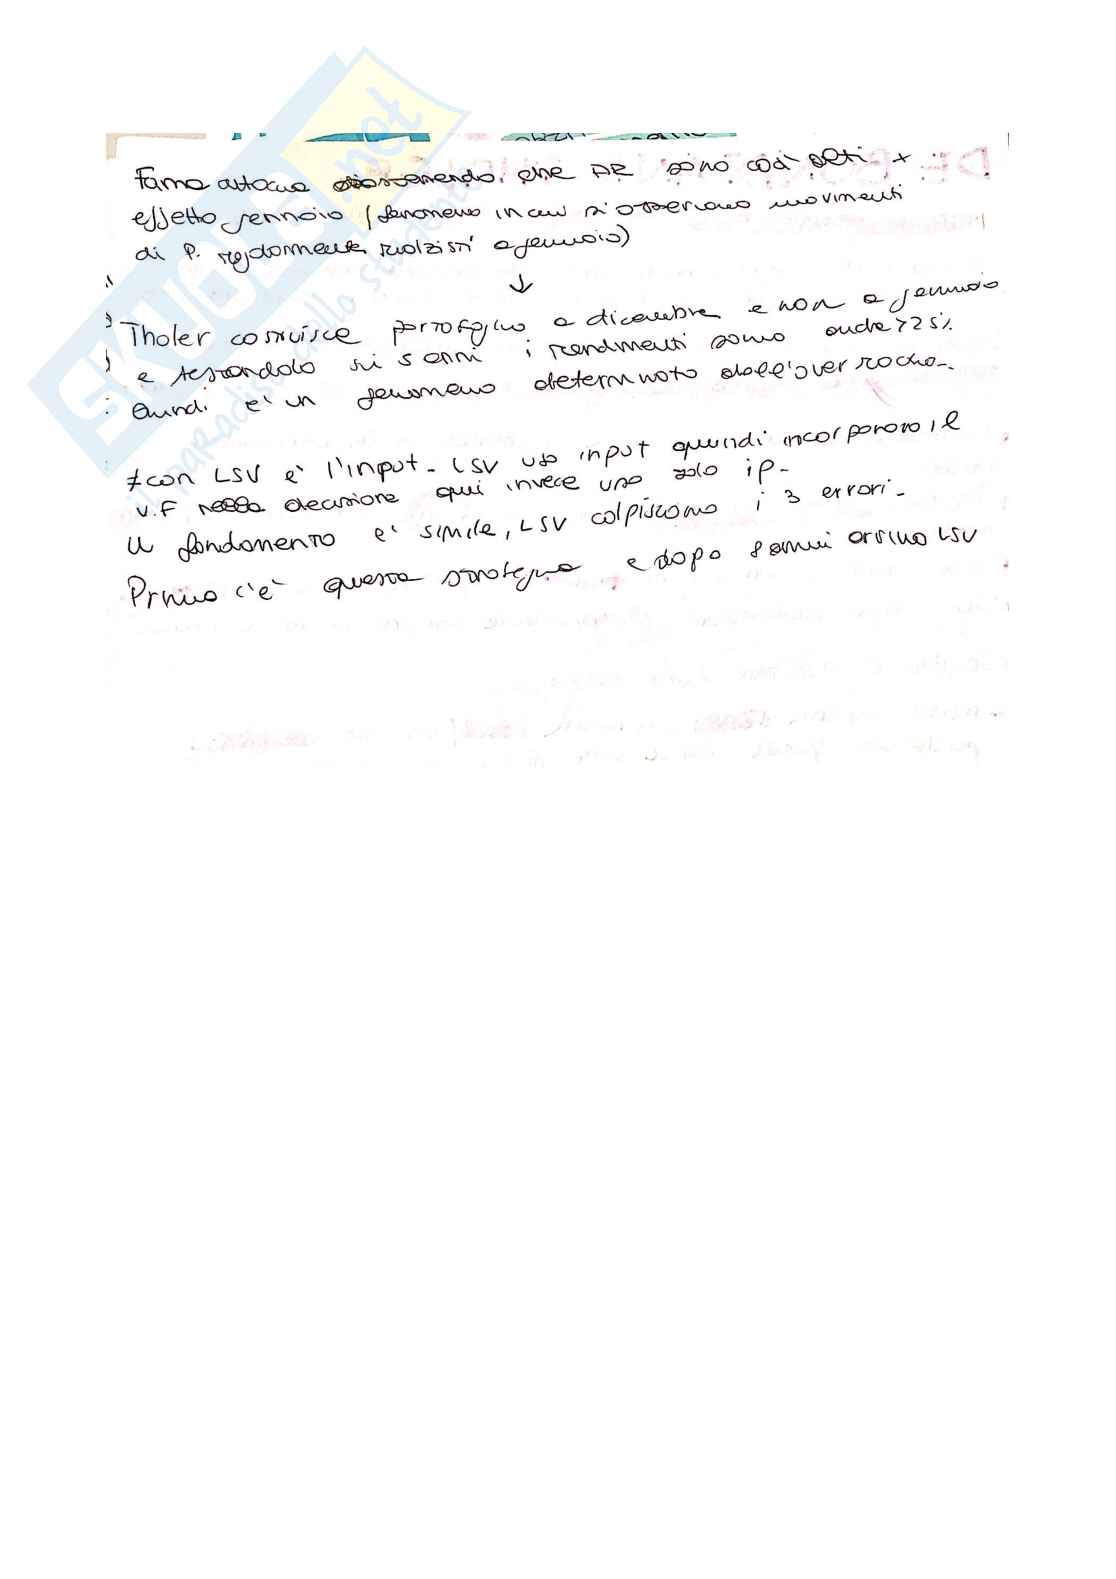 SKUOLA.net
il paradiso dello studente
Fama attacca sostenendo che AR sono così alti x
effetto gennaio (fenomeno in cui si osservano movimenti
di P. regolarmente rialzisti a gennaio)
↓
Thaler costruisce portafoglio a dicembre e non a gennaio
e testandolo su 5 anni i rendimenti sono anche >25%
Quindi e' un fenomeno determinato dall'over
≠ con LSV e' l'input. LSV usa input quindi incorporano il
V.F nella decisione qui invece usa solo il P.
Il fondamento e' simile, LSV colpiscono i 3 errori.
Prima c'e' questa strategia e dopo anni arriva LSV